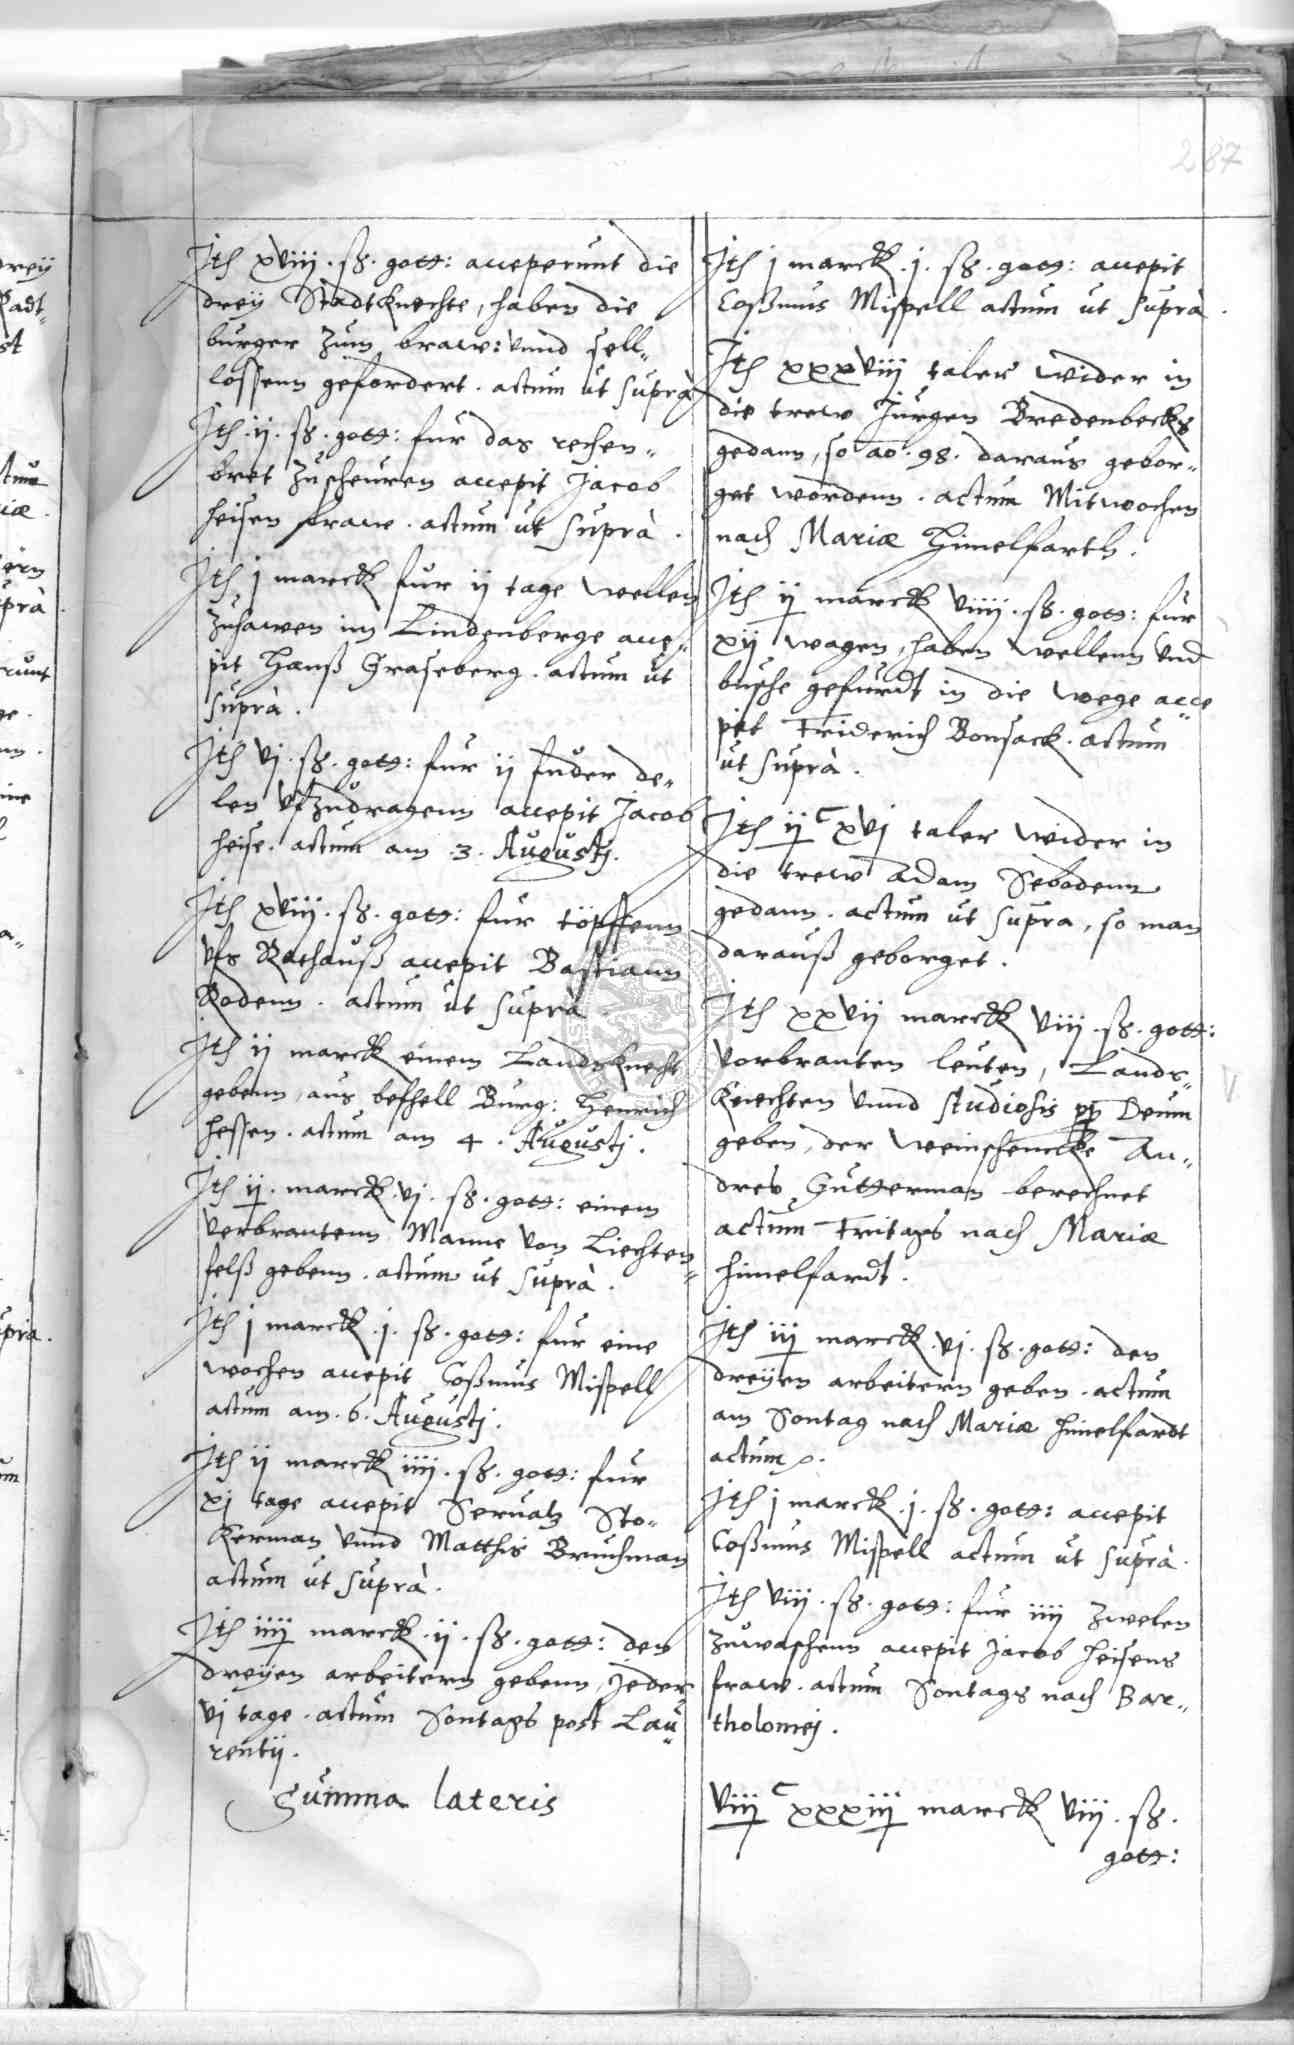 287
Ith xviij. ß. gott: acceperunt die
dreÿ Stadtknechte, haben die
burger zum braw: vnnd sell„
lossenn gefordert. actum ut suprà
Ith ij. ß. gott: fur das rechen„
bret zuscheuren accepit Jacob
Heisen frawe. actum ut suprà.
Ith j marck fur ij tage wellen
zuhawen im Lindenberge acce„
pit Hanß Graseberg. actum ut
suprà.
Ith vj. ß. gott: fur ij fuder de„
len vfzudragenn accepit Jacob
Heise. actum am .3. Augustj.
Ith xviij. ß. gott: fur töpffenn
vfs Rathauß accepit Bastiann
Rodenn. actum ut suprà
Ith ij marck einem Landsknecht
gebenn, aus befhell Burg: Henrich
Hessen. actum am 4. Augustj.
Ith ij. marck. vj. ß. gott: einem
verbrantenn Manne von Liechten„
felß gebenn. actum ut suprà.
Ith j marck. j. ß. gott: fur eine
wochen accepit Coßmus Mispell
actum am. 6. Augustj.
Ith ij marck iiij. ß. gott: fur
xj tage accepit Seruatz Sto„
kerman vnnd Matthis Bruchman
actum ut suprà.
Ith iiij marck. ij. ß. gott: den
dreÿen arbeitern gebenn, Jeder
vj tage. actum Sontags post Lau„
rentij.
Summa lateris
Ith j marck. j. ß. gott: accepit
Coßmus Mispell actum ut suprà.
Ith xxxviij taler wider in
die trew Jurgen Bredenbecks
gedann, so ao. 98. daraus gebor„
get wordenn. actum Mitwochen
nach Mariæ Himelfarth.
Ith ij marck viiij. ß. gott: fur
xij wagen, haben wellenn vnd
busche gefurdt in die wege acce„
pit Friderich Bonsack. actum
ut suprà.
Ith ij C xvj taler wider in
die trew Adam Sebodenn
gedann. actum ut supra, so man
darauß geborget.
Ith xxvij marck viij. ß. gott:
vorbranten leuten, Lands„
knechten vnnd studiosis pp Deum
geben, der weinschencke An„
dres Gutterman berechnet
actum Fritags nach Mariæ
himelfardt.
Ith iij marck. vj. ß. gott: den
dreÿen arbeitern geben. actum
am Sontag nach Mariæ himelfardt
actum.
Ith j marck. j. ß. gott: accepit
Coßmus Mispell actum ut suprà.
Ith viij. ß. gott: fur iiij zwelen
zuwaschenn accepit Jacob Heisens
fraw. actum Sontags nach Bar„
tholomej.
viij C xxxiij marck viij. ß.
gott: